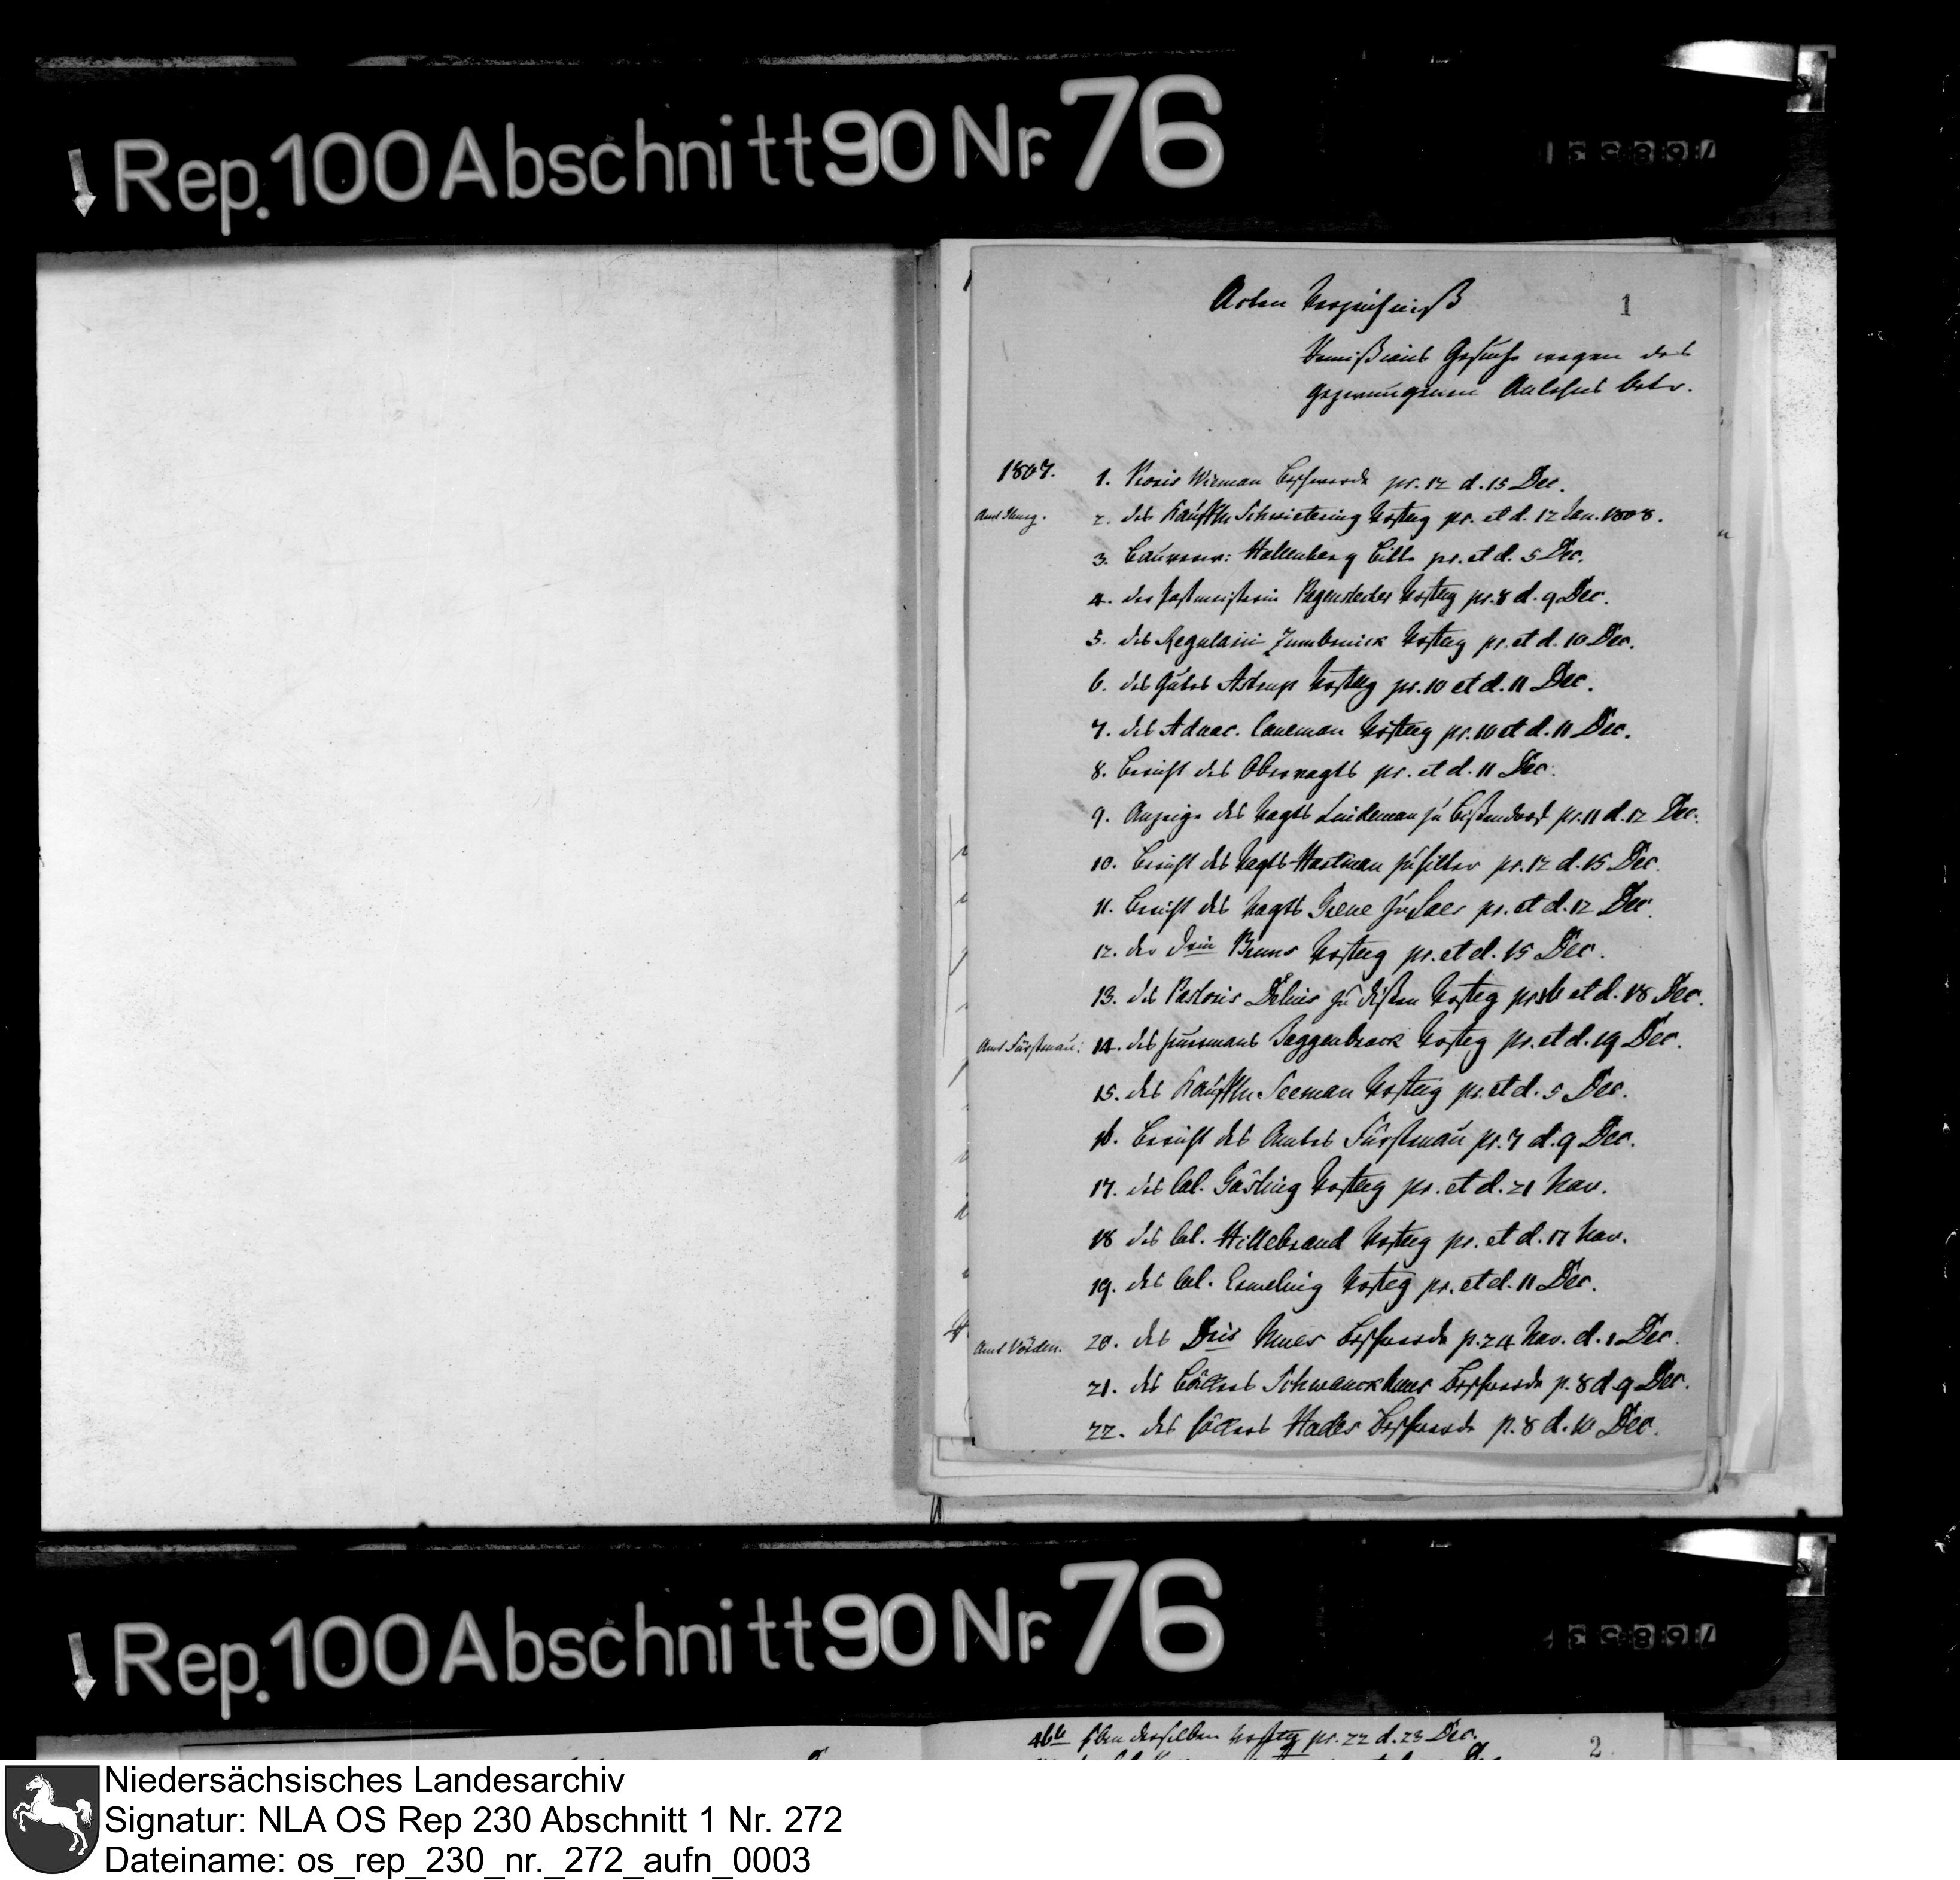 Rep. 100 Abschnitt 90 Nr. 76
Acten Verzeichniß
1
Remissions Gesuche wegen des
gezwungenen Anlehns betr.
1807.
1. Vicarii Wieman Beschwerde pr. 12 d. 15 Dec.
Amt Iburg.
2. des Kauffm Schwietering Vorstellg pr. et d. 12 Jan. 1808.
3. Hollenberg Bitte pr. et d. 5 Dec.
4. der Postmeisterin Pagenstecher Vorstellg pr. 8 d. 9 Dec.
5. des Zumbrinck Vorstellg pr. et d. 10 Dec.
6. des Guts Astrup Vorstellg pr. 10 et d. 11 Dec.
7. des Advoc. Vorstellg pr. 10 et d. 11 Dec.
8. Bericht des Obervogts pr. et d. 11 Dec.
9. Anzeige des Vogts Lindeman zu Bissendorf pr. 11 d. 12 Dec.
10. Bericht des Vogts Hartman zu Hilter pr. 12 d. 15 Dec.
11. Bericht des Vogts zu Laer pr. et d. 12 Dec.
12. der Bruns Vorstellg pr. et d. 15 Dec.
13. des Pastoris Delius zu Dissen Vorstellg pr. 16 et d. 18 Dec.
Amt Fürstenau:
14. des Heuermans Vorstellg pr. et d. 19 Dec.
15. des Kauffm. Seeman Vorstellg pr. et d. 5 Dec.
16. Bericht des Amtes Fürstenau pr. 7 d. 9 Dec.
17. des Col. Gösling Vorstellg pr. et d. 21 Nov.
18 des Col. Hillebrand Vorstellg pr. et d. 17 Nov.
19. des Col. Ermeling Vorstellg pr. et d. 11 Dec.
Amt Vörden.
20. des Dris Beschwerde p. 24 Nov. d. 1 Dec.
21. des Schwanckhaus Beschwerde p. 8 d. 9 Dec.
22. des Beschwerde p. 8 d. 10 Dec.
Rep. 100 Abschnitt 90 Nr. 76
derselben Vorstellg pr. 22 d. 23 Dec.
2
Niedersächsisches Landesarchiv
Signatur: NLA OS Rep 230 Abschnitt 1 Nr. 272
Dateiname: os_rep_230_nr._272_aufn_0003